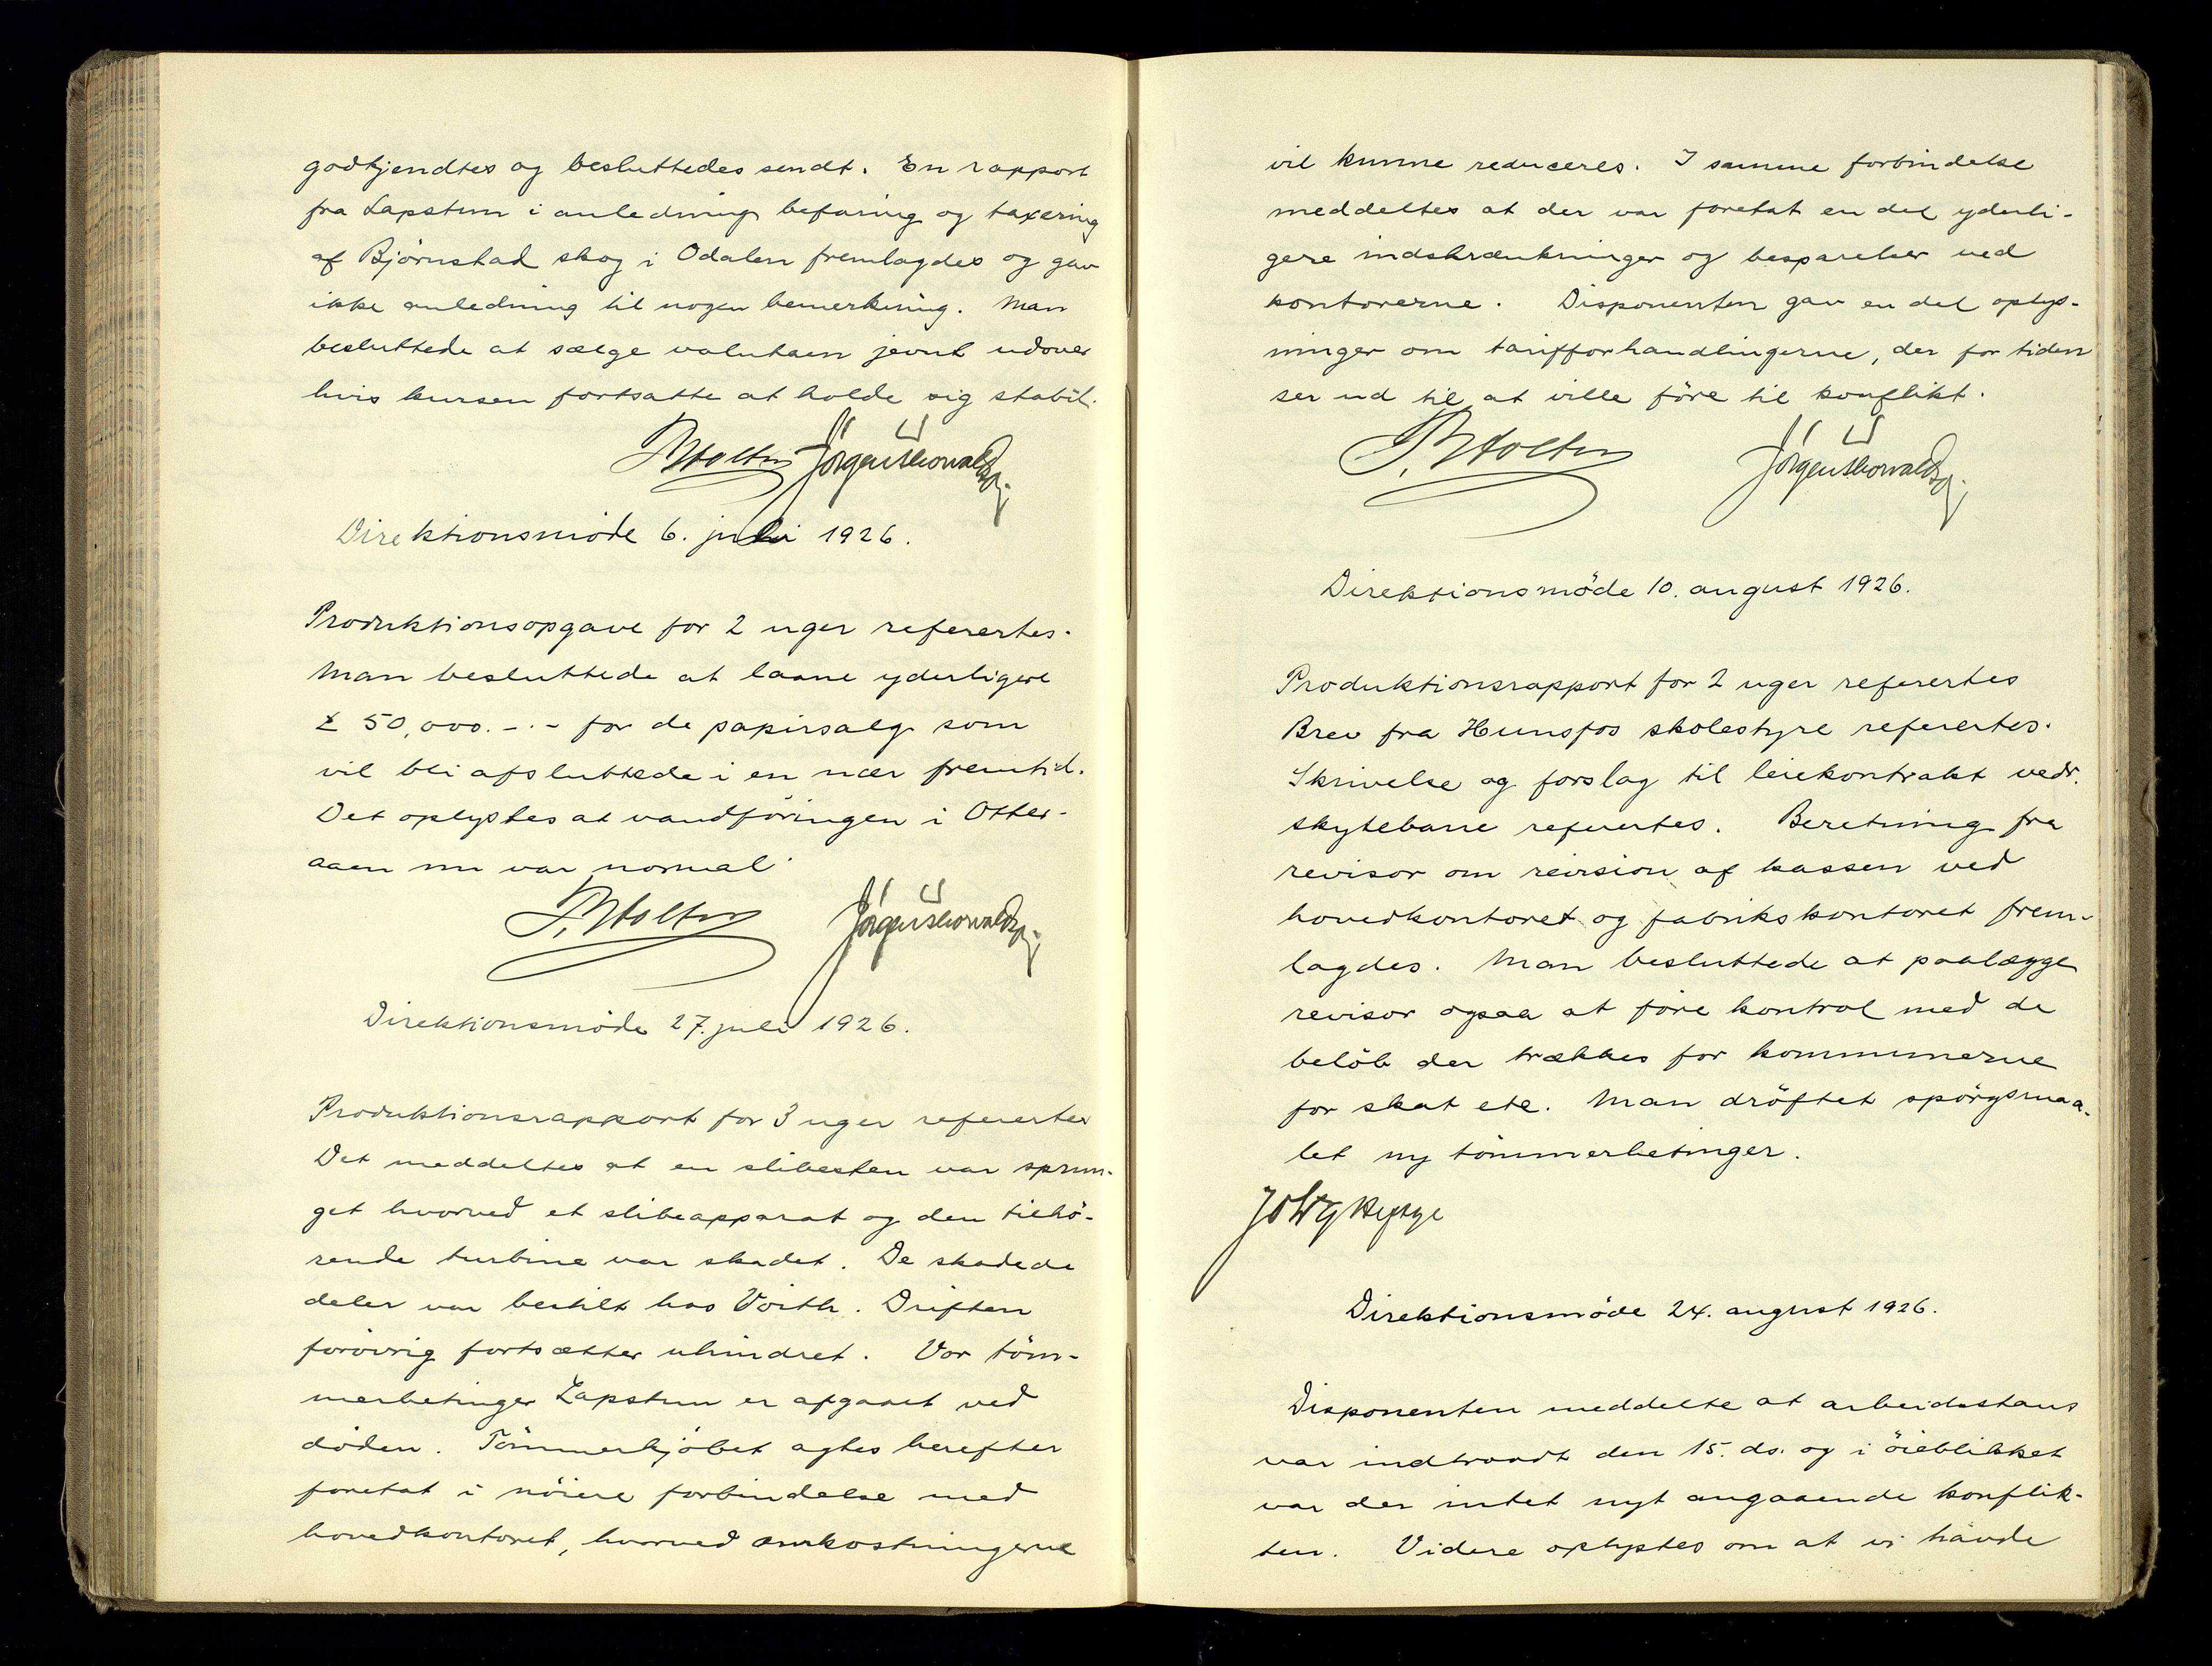 godkjendtes og besluttedes sendt. En rapport
fra Lapstun i anledning befaring og taxering
af Björnstad skog i Odalen fremlagdes og gav
ikke anledning til nogen bemerkning. Man
besluttede at sælge valutaen jevnt udover
hvis kursen fortsatte at holde sig stabil.
Direktionsmöde 6. juli 1926.
Produktionsopgave for 2 uger refertes.
Man besluttede at laane yderligere
£ 50,000.-.- for de papirsalg som
vil bli afsluttede i en nær fremtid.
Det oplystes at vandföringen i Otter-
aaen nu var normal.
Direktionsmöde 27. juli 1926.
Produktionsrapport for 3 uger refertes
Det meddeltes at en slibesten var sprun-
get hvorved et slibeapparat og den tilhö-
rende turbine var skadet. De skadede
deler var bestilt hos Voith. Driften
forövrig fortsætter uhindret. Vor töm-
merbetinger Lapstun er afgaaet ved
döden. Tömmerkjöbet agtes herefter
foretat i nöiere forbindelse med
hovedkontoret, hvorved omkostningerne
vil kunne reduceres. I samme forbindelse
meddeltes at der var foretat en del yderli-
gere indskrænkninger og besparelser ved
kontorerne. Disponenten gav en del oplys-
ninger om tarifforhandlingerne, der for tiden
ser ud til at ville före til konflikt.
Direktionsmöde 10. august 1926.
Produktionsrapport for 2 uger referertes
Brev fra Hunsfos skolestyre referertes.
Skrivelse og forslag til leiekontrakt vedr.
skytebane refertes. Beretning fra
revisor om revision af kassen ved
hovedkontoret og fabrikskontoret frem-
lagdes. Man besluttede at paalægge
revisor ogsaa at före kontrol med de
belöb der trækkes for kommunerne
for skat etc. Man dröftet spörgsmaa-
let ny tömmerbetinger.
Direktionsmöde 24. august 1926.
Disponenten meddelte at arbeidsstans
var indtraadt den 15. ds. og i öieblikket
var der intet nyt angaaende konflik-
ten. Videre oplystes om at vi havde